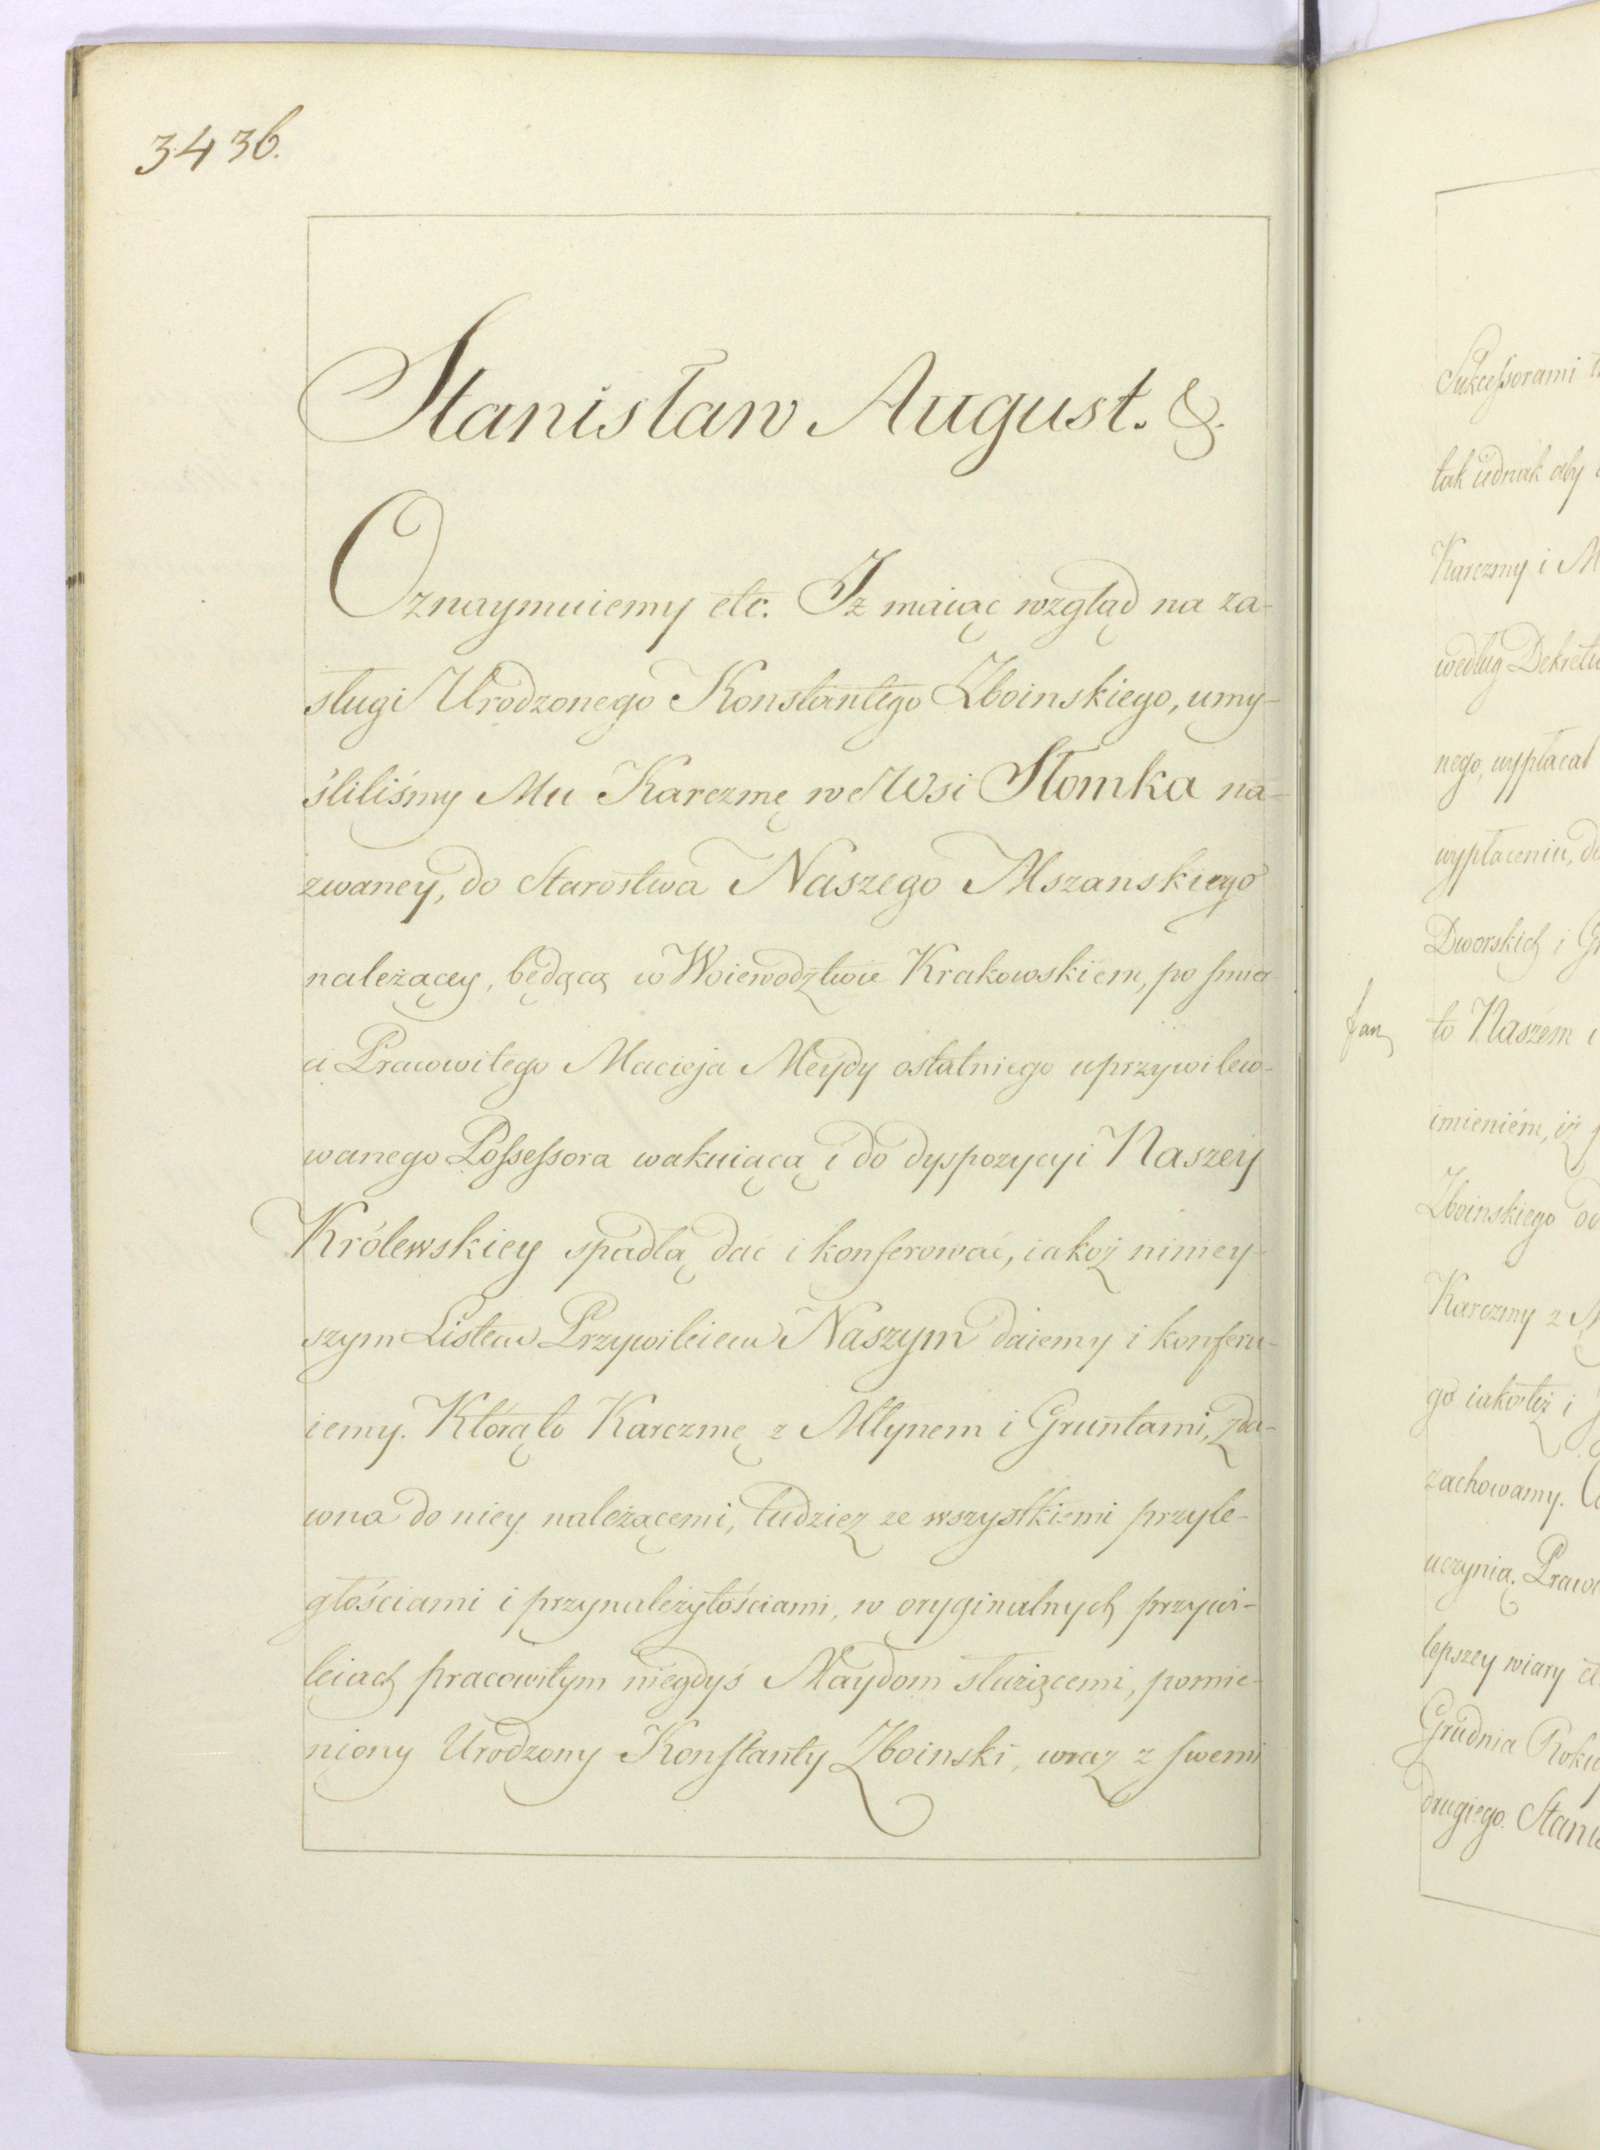 3436.
Stanisław August. &.
Oznaymuiemy etc. Iż maiąc wzgląd na za-
sługi Urodzonego Konstantego Zboinskiego, umy-
śliliśmy Mu Karczmę we Wsi Słomka na-
zwaney, do Starostwa Naszego Mszanskiego
należącey, będącą w Woiewodztwie Krakowskiem, po smier-
ci Pracowitego Macieja Meydy ostatniego uprzywilew-
wanego Possessora wakuiącą i do dyspozycyi Naszey
Królewskiey spadłą dać i konferować, iakoż niniey-
szym Listem Przywileiem Naszym daiemy i konferu-
iemy. Którąto Karczmę z Młynem i Gruntami, zda-
wna do niey należącemi, tudzież ze wszystkiemi przyle-
głościami i przynależytościami, w oryginalnych przywi-
leiach pracowitym niegdyś Maydom służącemi, pomie-
niony Urodzony Konstanty Zboinski, wraz z swemi
Sukcessorami
tak iednak aby
Karczmy i M
według Dekretu
nego, wypłacał
wypłaceniu, do
Dworskich i Gr
to Naszem i
imieniem, iż
Zboinskiego od
Karczmy z
go iakoteż i
zachowamy.
uczynią. Prawa
lepszey wiary et
Grudnia Roku
drugiego. Stanis